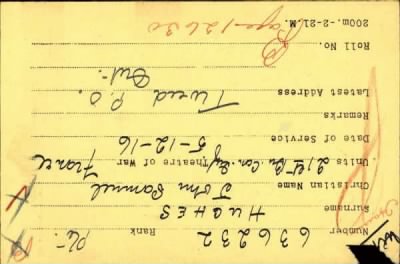 Number 636232 Rank Pte.
Surname HUGHES
Christian Name John Samuel
Units. 21st Bn. Can. Inf. Theatre of War France
Date of Service 5-12-16
Remarks
Latest Address Tweed P.O.
Ont.
Roll No.
200m.-2-21.M. Page-12630